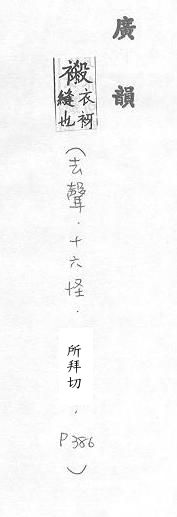 廣韻
襏衣衸縫也(去聲.十六怪.所拜切.P386)